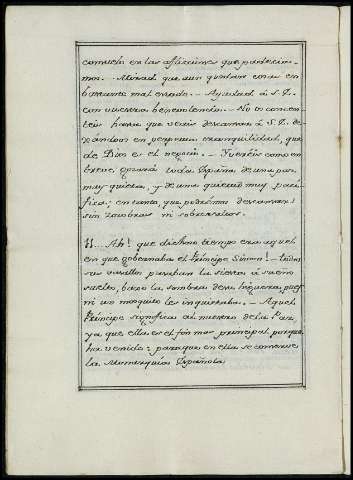 consuelo en las aflicciones que padecim-
mos. - Mirad que aun quedan cosas en
bastante mal estado. - Ayudad á S. E.
con vuestra benevolencia. - No os conten-
teis hasta que veais descansar á S. E. de-
xándoos en perpetua tranquilidad, que
de Dios es el negocio. - Y vereis como en
breve gozará toda España de una paz
muy quieta, y de una quietud muy paci-
fica; en tanto que podremos descansar
sin zozobras ni sobresaltos.
II.... Ah! que dichoso tiempo era aquel
en que gobernaba el Príncipe Simon! - todos
sus vasallos pasaban la siesta á sueño
suelto, baxo la sombra de su higuera, pues
ni un mosquito les inquietaba. - Aquel
Príncipe significa al nuestro de la Paz,
ya que ella es el fin mas principal porque
ha venido: para que en ella se conserve
la Monarquía Española